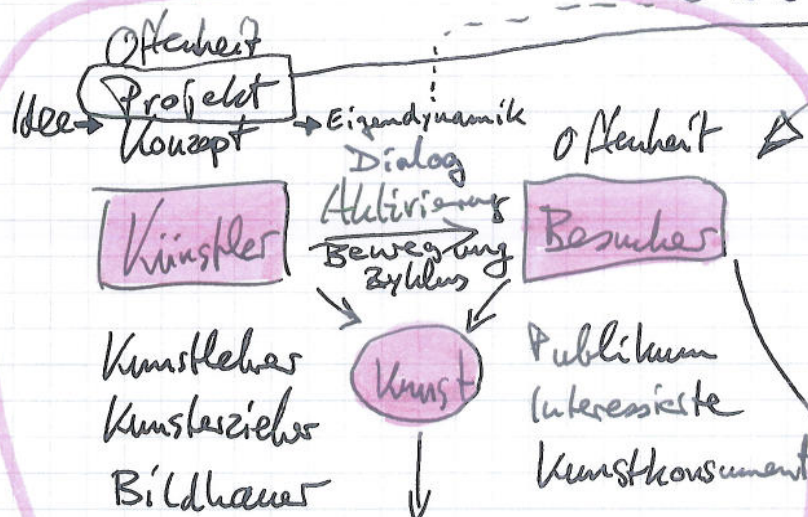 Offenheit
Projekt
Idee
Konzept
Eigendynamik
Dialog
Aktivierung
Bewegung
Zyklus
Offenheit
Künstler
Besucher
Kunst
Kunstlehrer
Kunsterzieher
Bildhauer
Publikum
Interessierte
Kunstkonsument